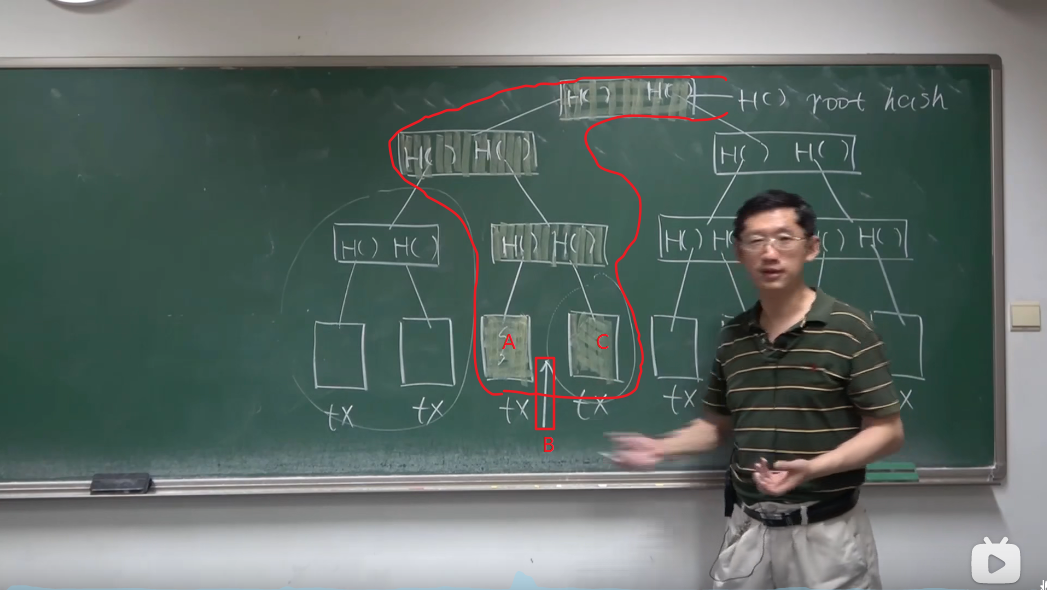 H( ) H( ) H( ) root hash
H( ) H( ) H( ) H( )
H( ) H( ) H( ) H( ) H( ) H( )
A C
tx tx tx tx tx
B